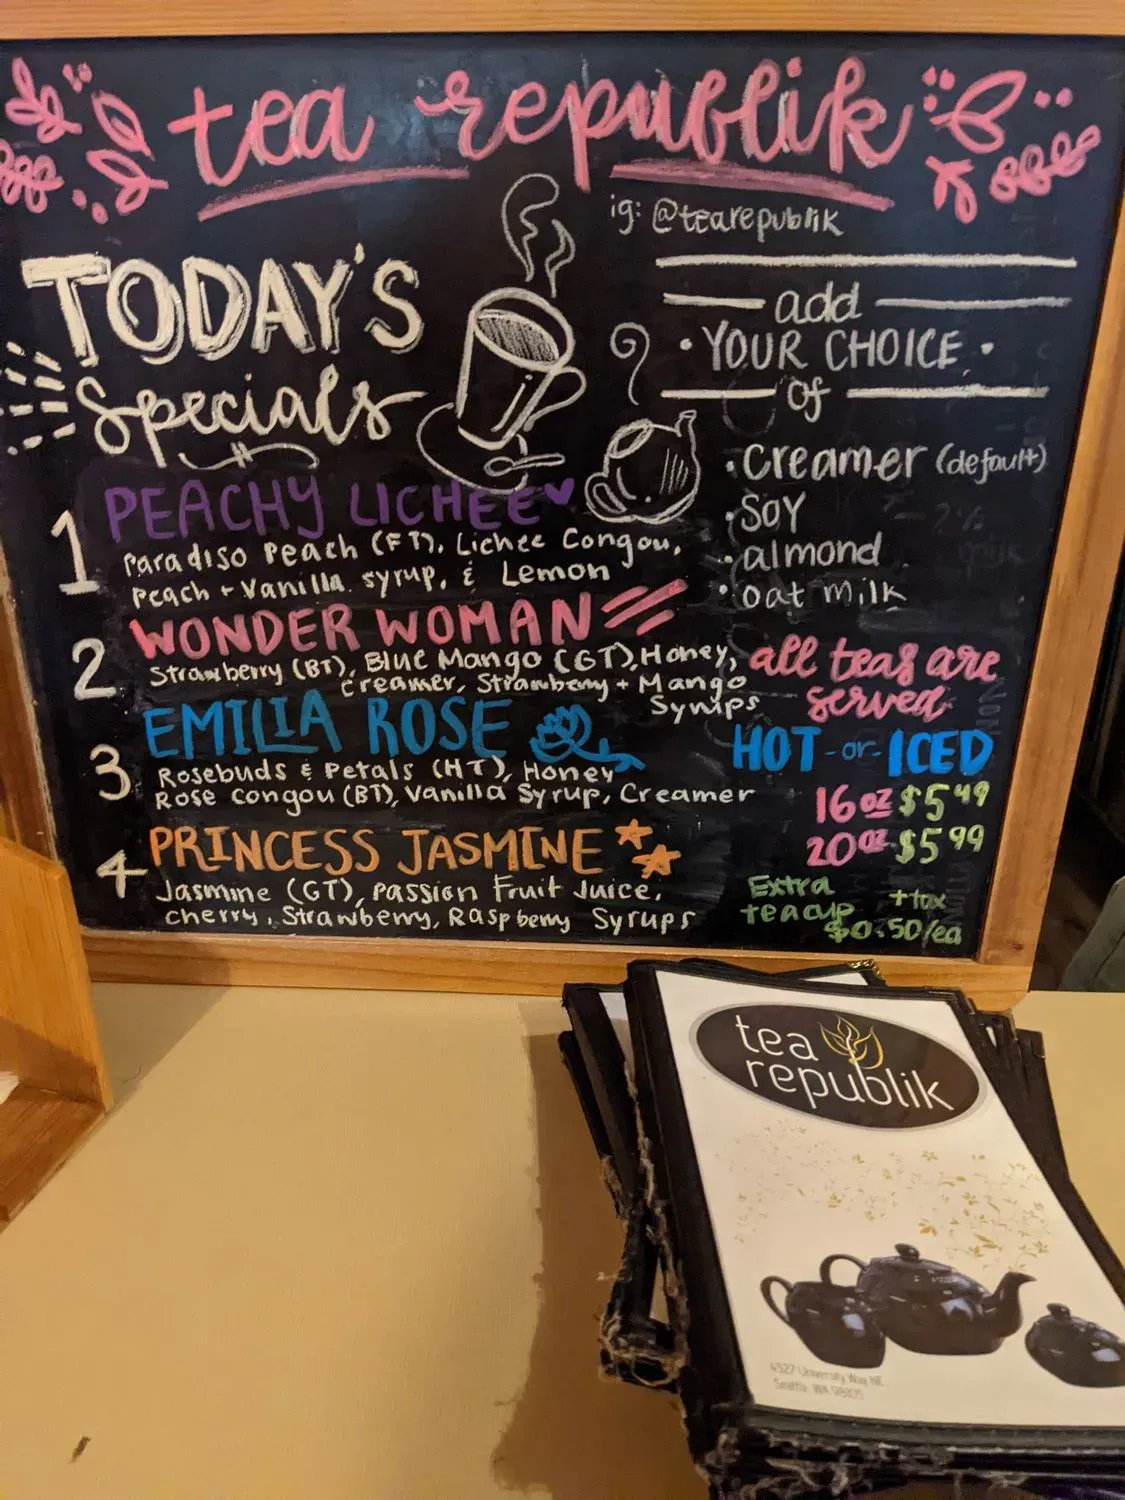 tea republik
ig: @tearepublik
TODAY'S
Specials
1 PEACHY LICHEE
Paradiso Peach (FT), Lichee Congou,
Peach + Vanilla syrup, & Lemon
2 WONDER WOMAN
Strawberry (BT), Blue Mango (GT), Honey,
creamer, Strawberry + Mango
Syrups
3 EMILIA ROSE
Rosebuds & Petals (HT), Honey
Rose Congou (BT), Vanilla Syrup, Creamer
4 PRINCESS JASMINE
Jasmine (GT), Passion Fruit Juice,
Cherry, Strawberry, Raspberry Syrups
add
• YOUR CHOICE •
of
• Creamer (default)
• Soy
• almond
• oat milk
all teas are
served
HOT -or- ICED
16 oz $5.49
20 oz $5.99
Extra + tax
teacup
$0.50/ea
tea
republik
4527 University Way NE
Seattle, WA 98105